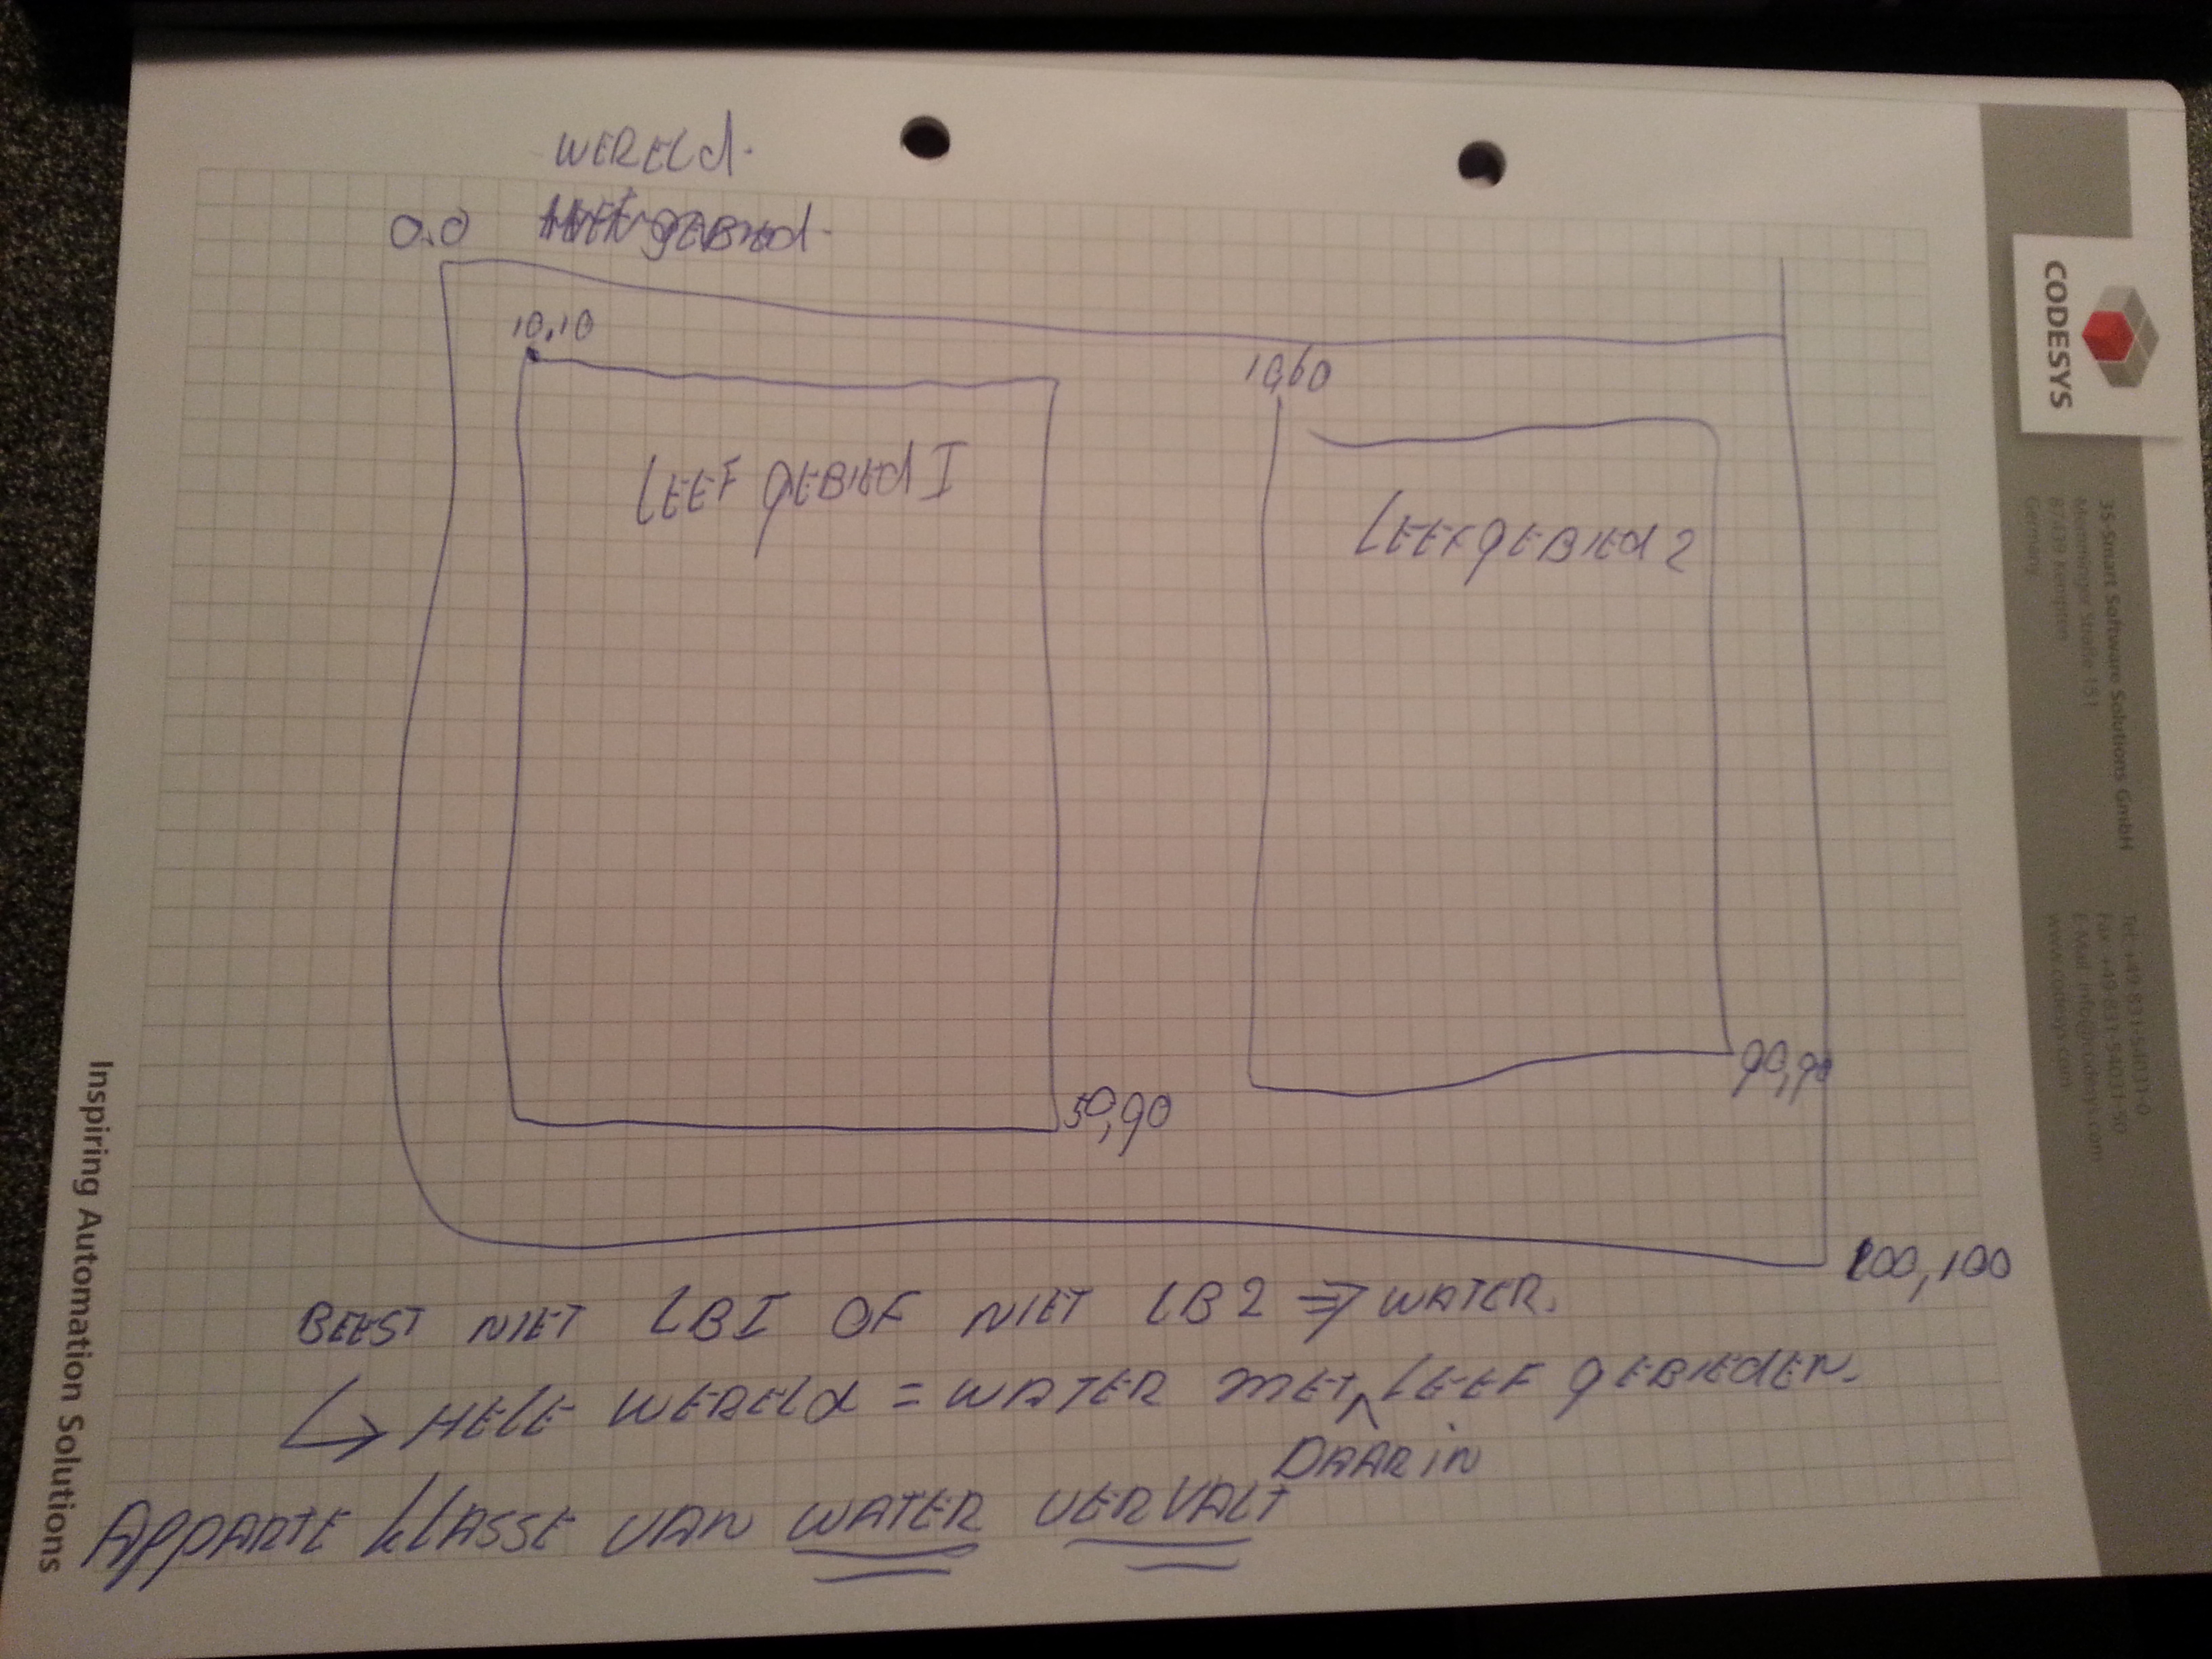 WERELd.
0.0
gEBIEd.
10,10
10,60
LEEF gEBIEd I
LEEFgEBIEd 2
50,90
90,90
100,100
BEEST NIET LBI OF NIET LB2 => WATER.
↳ HELE WERELd = WATER MET ^ LEEF gEBIEdEN.
DAARIN
APPARTE KLASSE VAN WATER VERVALT
CODESYS
3S-Smart Software Solutions GmbH
Memminger Straße 151
87439 Kempten
Germany
Tel. +49-831-54031-0
Fax +49-831-54031-50
E-Mail info@codesys.com
www.codesys.com
Inspiring Automation Solutions